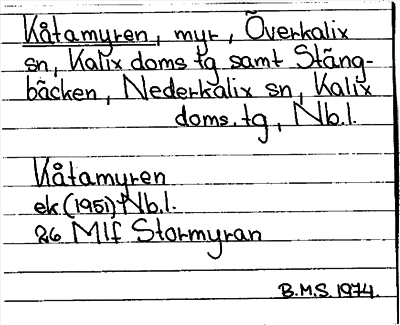 Kåtamyren, myr, Överkalix
sn, Kalix doms.tg samt Stäng-
bäcken, Nederkalix sn, Kalix
doms.tg, Nb.l.
Kåtamyren
ek (1951) Nb.l.
26 M1f Stormyran
B.M.S. 1974.